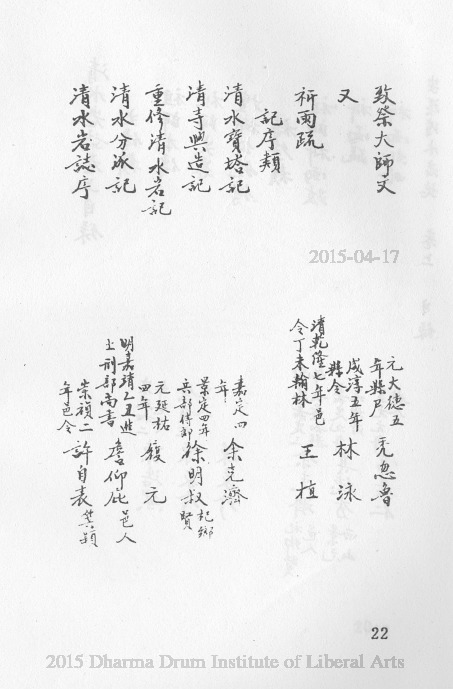 致祭大師文 元大德五年縣尹 禿忽魯
又 咸淳五年縣令 林泳
祈雨疏 清乾隆七年邑令丁未翰林 王植
記序類
清水寶塔記 嘉定四年 余克濟
清寺興造記 景定四年兵部侍郎 徐明叔 記鄉賢
重修清水岩記 元延祐四年 元
清水分派記 明嘉靖乙丑進士刑部尚書 詹仰庇 邑人
清水岩誌序 崇禎二年邑令 許自表
2015-04-17
22
2015 Dharma Drum Institute of Liberal Arts